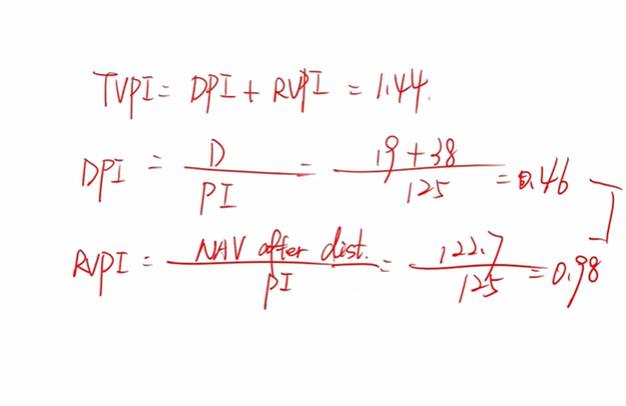 TVPI = DPI + RVPI = 1.44.
DPI = D / PI = 19 + 38 / 125 = 0.46
RVPI = NAV after dist. / PI = 122.7 / 125 = 0.98